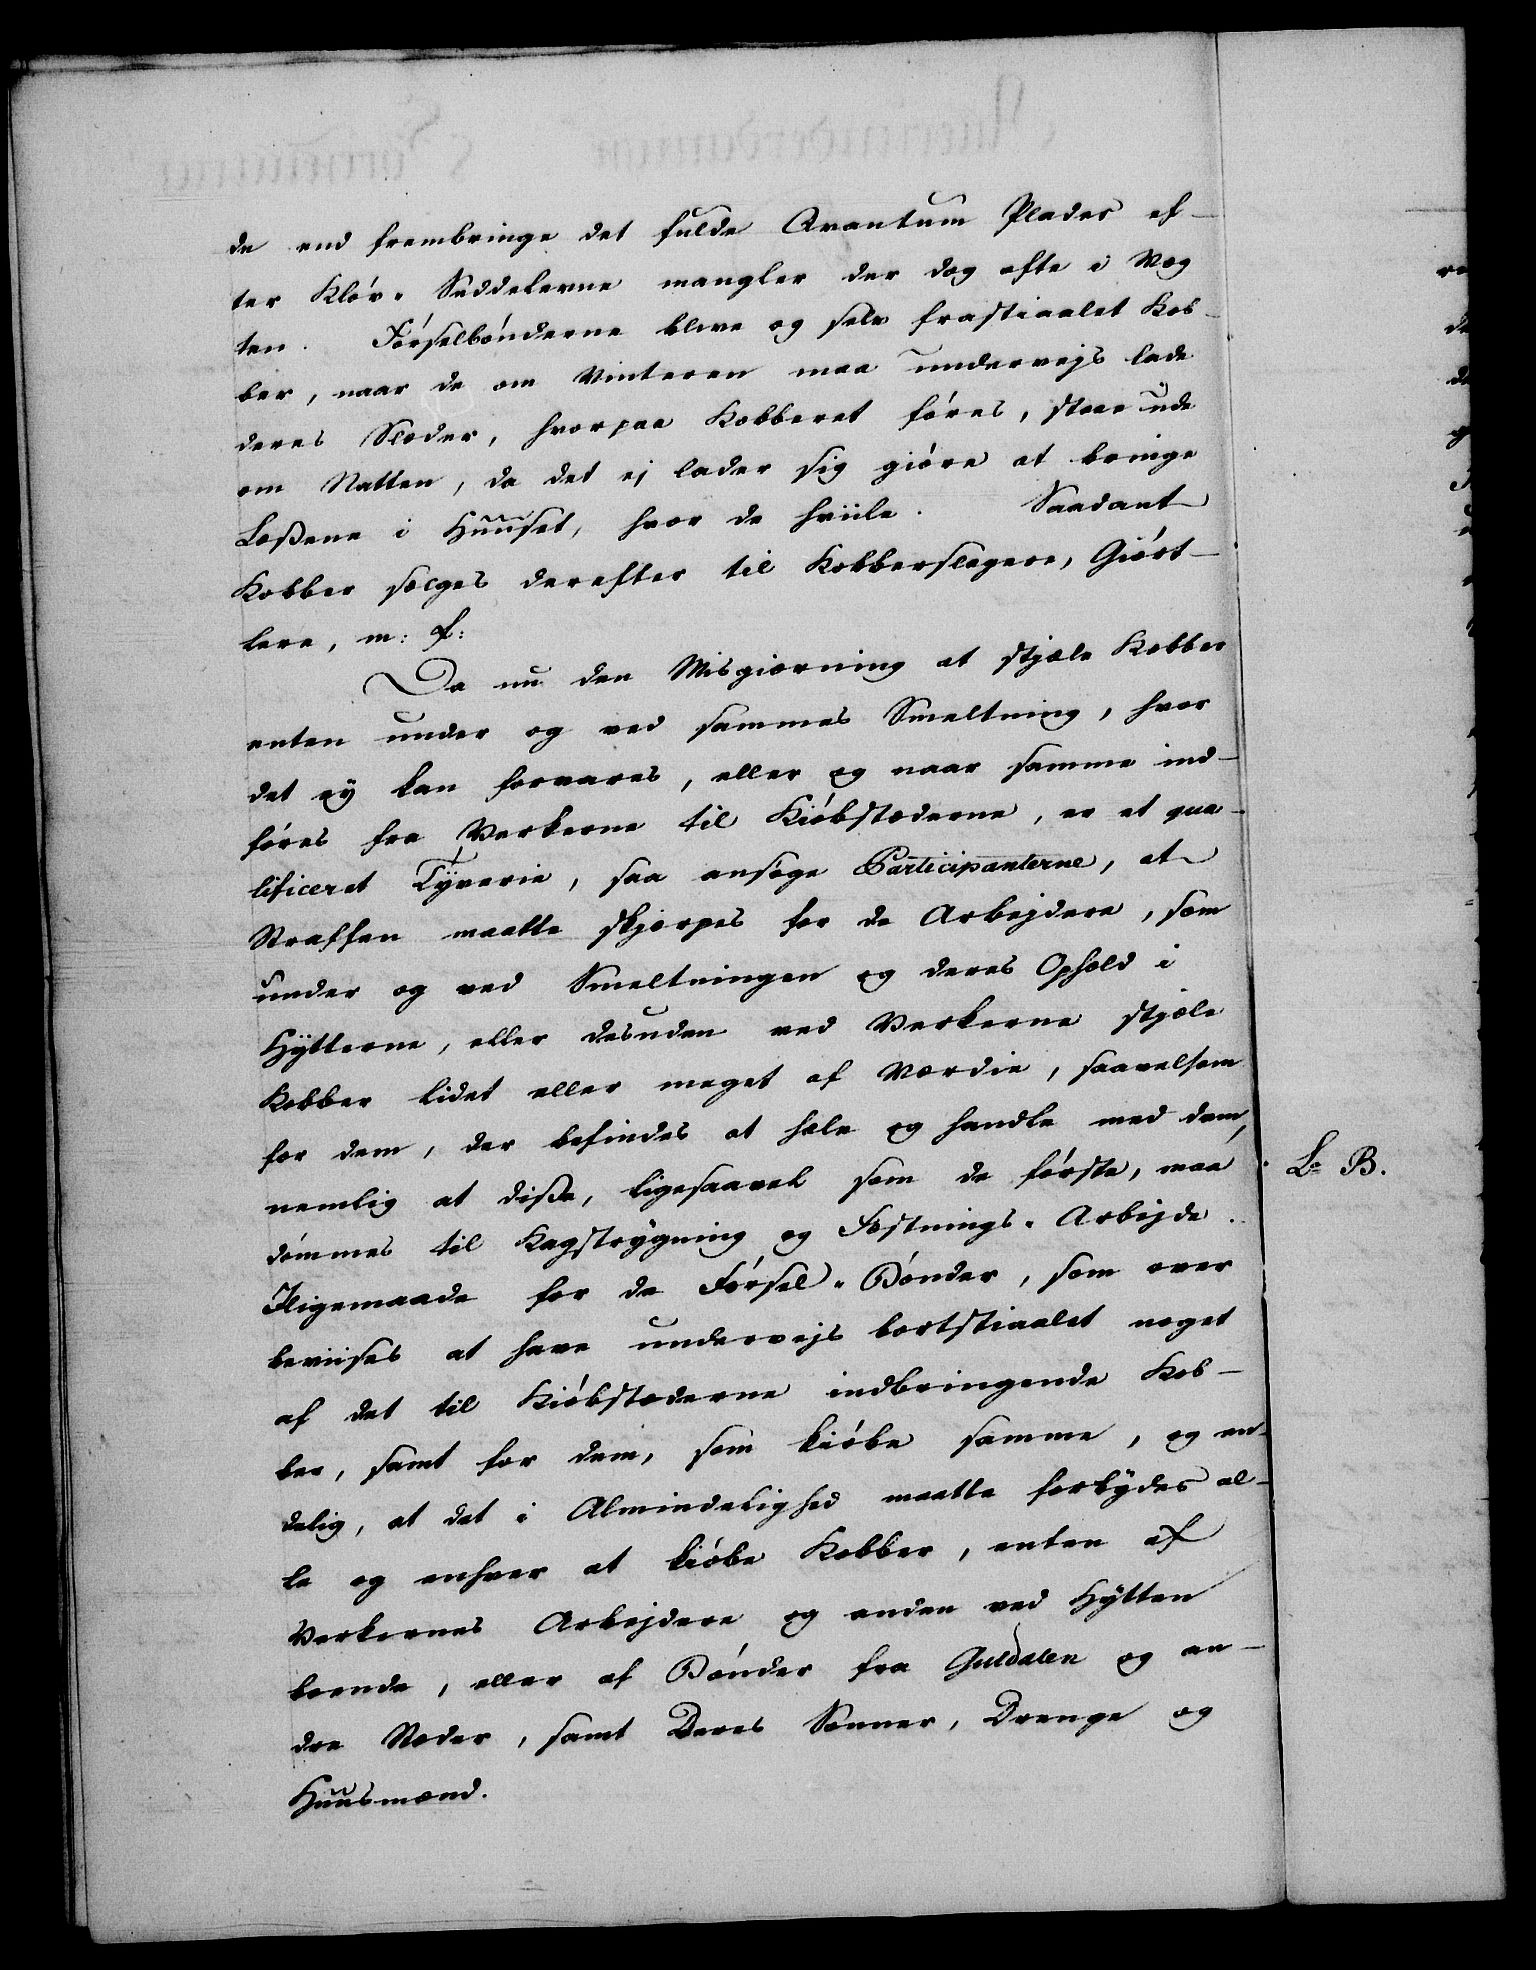 de end frembringe det fulde Qvantum Plader ef-
ter Kløv-Seddelerne mangler der dog ofte i Væg
ten. Førselbønderne bleve og selv frastiaalet Kob-
ber, naar de om Vinteren maa undervejs lade
deres Slæder, hvorpaa Kobberet føres, staae ude
om Natten, da det ej lader sig giøre at bringe
Læssene i Huuset, hvor de hviile. Saadant
Kobber sælges derefter til Kobberslagere, Giørt-
lere, m: fl:
Da nu den Misgierning at stjæle Kobber
enten under og ved sammes Smeltning, hvor
det ey kan forvares, eller og naar samme ind-
føres fra Verkerne til Kiøbstæderne, er et qua-
lificeret Tyverie, saa ansøge Participanterne, at
Straffen maatte skjerpes for de Arbejdere, som
under og ved Smeltningen og deres Ophold i
Hytterne, eller desuden ved Verkerne stjæle
Kobber lidet eller meget af Værdie, saavelsom
for dem, der befindes at hæle og handle med dem,
nemlig at disse, ligesaavel som de første, maa
dømmes til Kagstrygning og Fæstnings-Arbejde.
Iligemaade for de Førsel-Bønder, som over
beviises at have undervejs bortstiaalet noget
af det til Kiøbstæderne indbringende Kob-
ber, samt for dem, som kiøbe samme, og en-
delig, at det i Almindelighed maatte forbydes al-
le og enhver at kiøbe Kobber, enten af
Verkernes Arbejdere og anden ved Hytten
boende, eller af Bønder fra Guldalen og an-
dre Stæder, samt Deres Sønner, Drenge og
Huusmænd.
L: B.